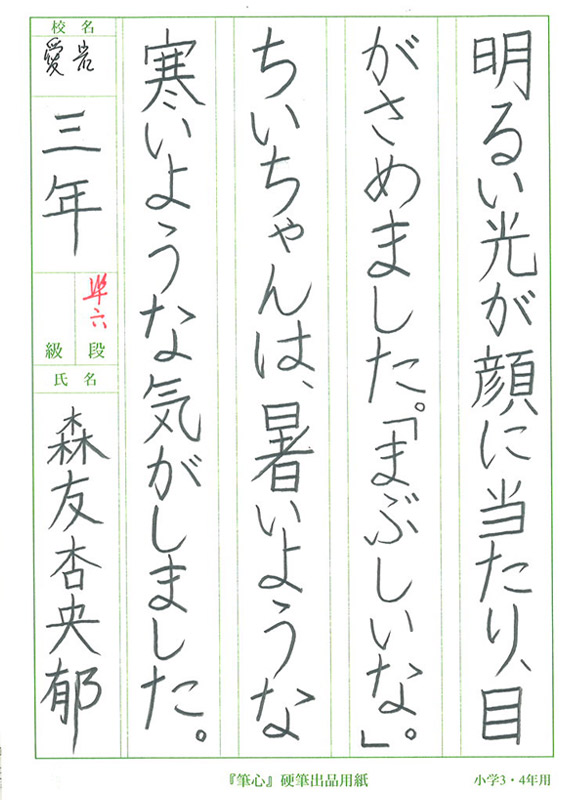 明るい光が顔に当たり、目
がさめました。「まぶしいな」。
ちいちゃんは、暑いような
寒いような気がしました。
校名
愛岩
三年
準六
段
級
氏名
森友杏央郁
『筆心』硬筆出品用紙
小学3・4年用